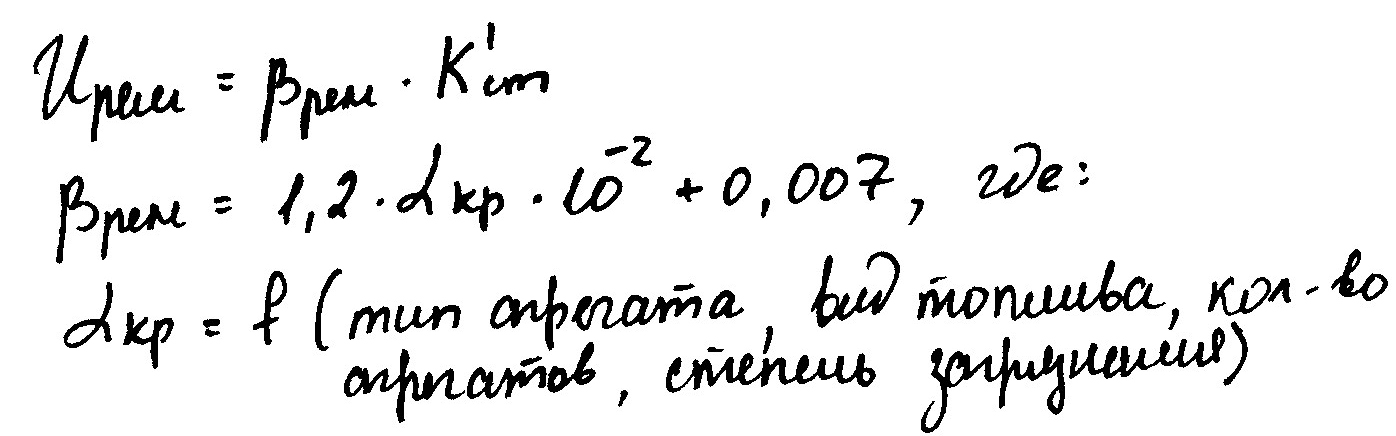 Ирем = βрем · K'ст
βрем = 1,2 · αкр · 10⁻² + 0,007, где:
αкр = f (тип агрегата, вид топлива, кол-во
агрегатов, степень загрузнения)